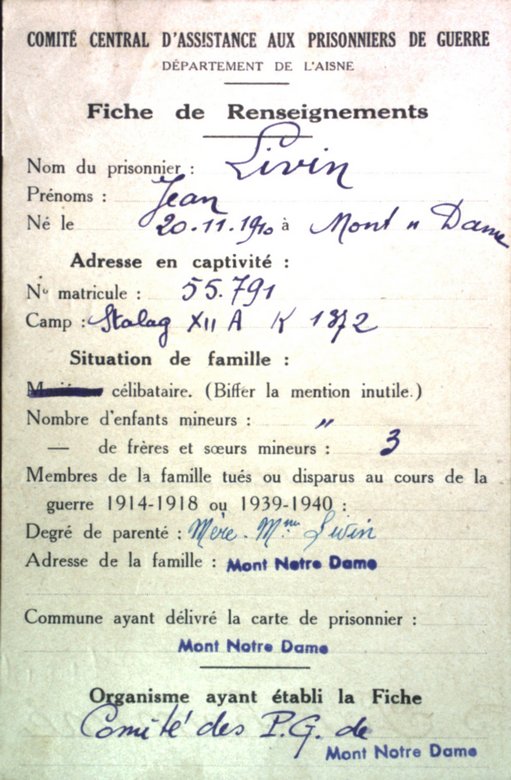 COMITÉ CENTRAL D'ASSISTANCE AUX PRISONNIERS DE GUERRE
DÉPARTEMENT DE L'AISNE
Fiche de Renseignements
Nom du prisonnier : Livin
Prénoms : Jean
Né le 20.11.1910 à Mont n Dame
Adresse en captivité :
N° matricule : 55.791
Camp : Stalag XII A K 1372
Situation de famille :
célibataire. (Biffer la mention inutile.)
Nombre d'enfants mineurs : "
— de frères et sœurs mineurs : 3
Membres de la famille tués ou disparus au cours de la
guerre 1914-1918 ou 1939-1940 :
Degré de parenté : Mère. Mme Livin
Adresse de la famille : Mont Notre Dame
Commune ayant délivré la carte de prisonnier :
Mont Notre Dame
Organisme ayant établi la Fiche
Comité des P.G. de
Mont Notre Dame